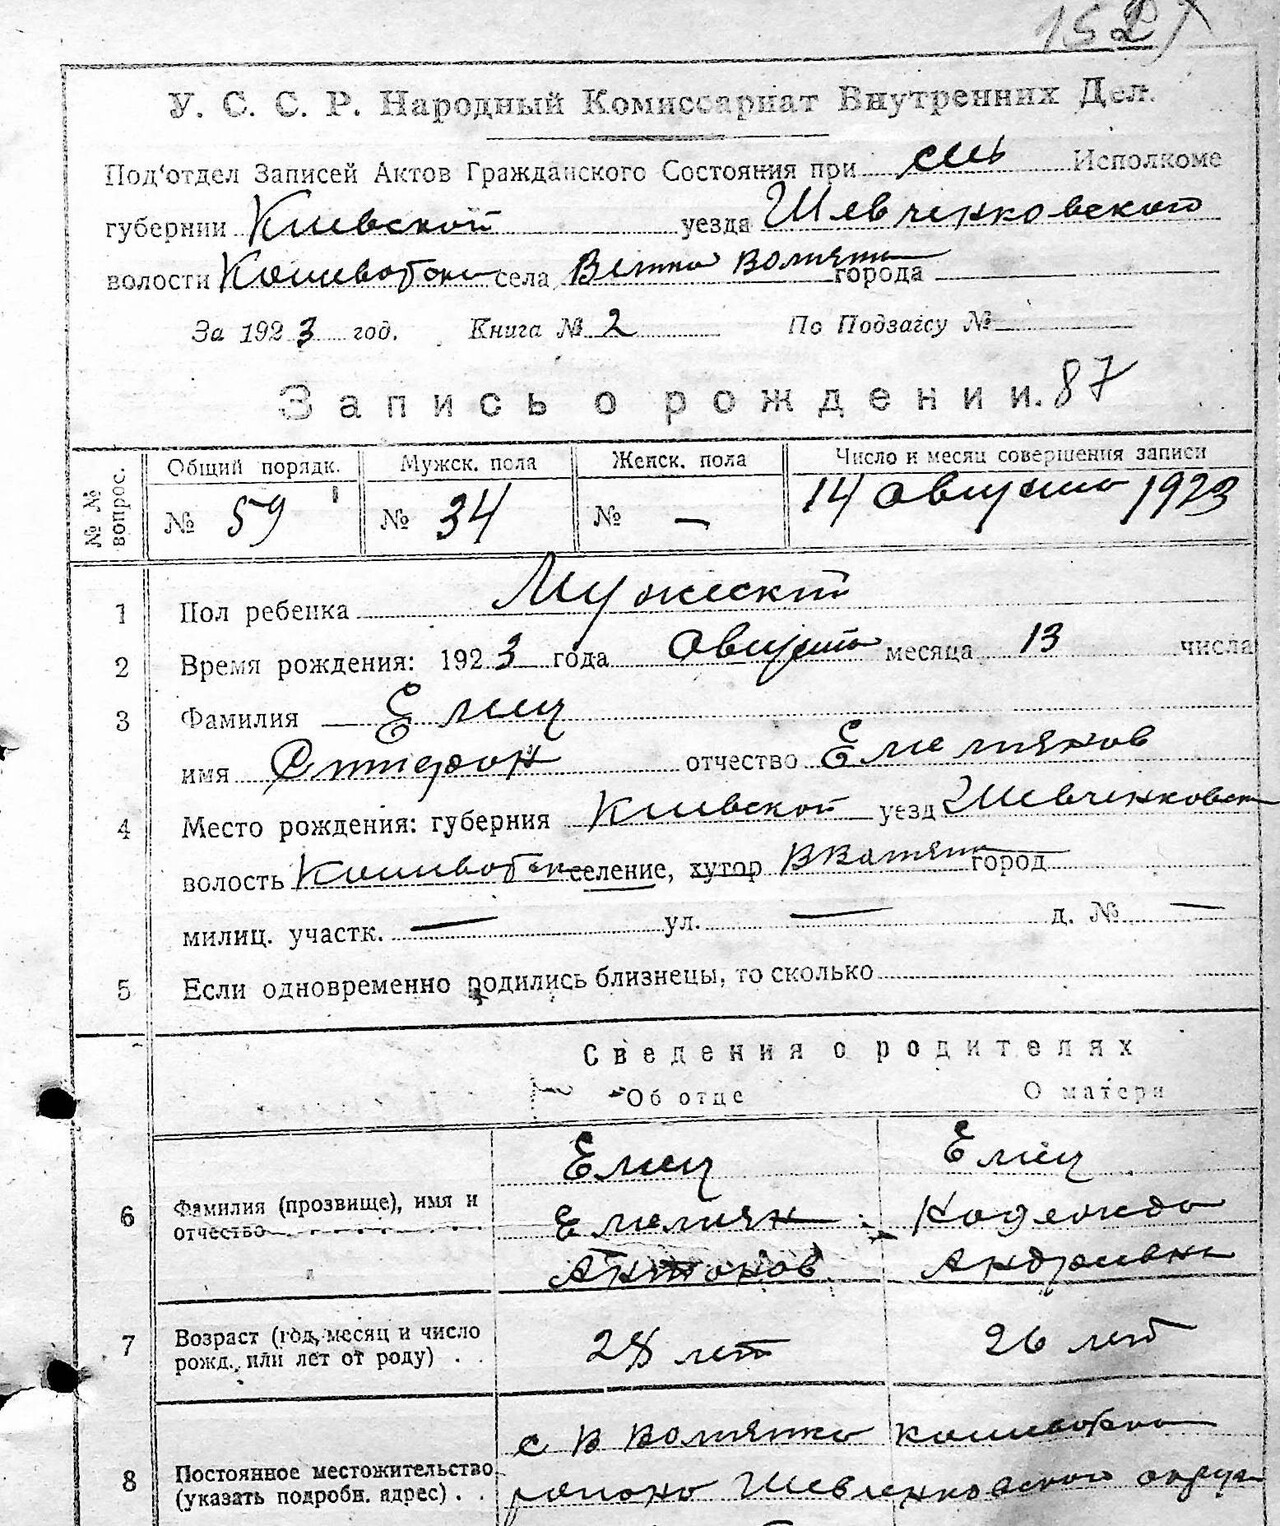 152
У. С. С. Р. Народный Комиссариат Внутренних Дел.
Под'отдел Записей Актов Гражданского Состояния при Исполкоме
губернии Киевской уезда Шевченковского
волости села города
За 1923 год. Книга № 2 По Подзагсу №
Запись о рождении. 87
№ № вопрос.
Общий порядк. Мужск. пола Женск. пола Число и месяц совершения записи
№ 59 № 34 № — 14 августа 1923
1 Пол ребенка Мужеский
2 Время рождения: 1923 года Августа месяца 13 числа
3 Фамилия Елец
имя отчество Емельянов
4 Место рождения: губерния Киевской уезд Шевченковск
волость селение, хутор город
милиц. участк. — ул. — д. № —
5 Если одновременно родились близнецы, то сколько
Сведения о родителях
Об отце О матери
6 Фамилия (прозвище), имя и отчество
Елец Елец
Емельян Надежда
Антонов Андреевна
7 Возраст (год, месяц и число рожд. или лет от роду) . .
28 лет 26 лет
8 Постоянное местожительство (указать подробн. адрес) . .
с В
района Шевченковского округа